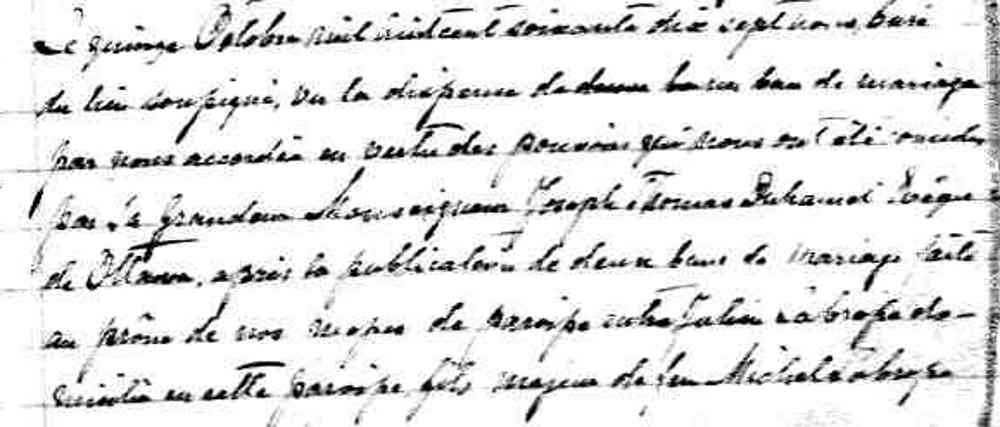 Le quinze Octobre mil huit cent soixante dix sept nous, curé
du lieu soussigné, vu la dispense de bans de mariage
par nous accordée en vertu des pouvoirs qui nous ont été concédés
par Sa Grandeur Monseigneur Joseph Thomas Duhamel Evêque
de Ottawa, après la publication de deux bans de mariage faite
au prône de nos messes de paroisse entre Julien Labrosse do-
micilié en cette paroisse, fils majeur de feu Michel Labrosse